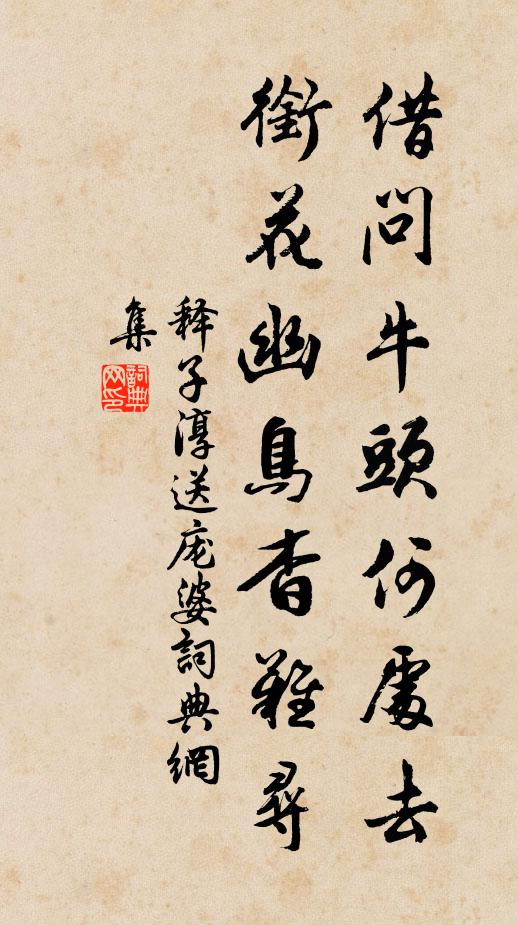 借問牛頭何處去
銜花幽鳥杳難尋
释子淳送庞婆詞典網
集
詞典
网印